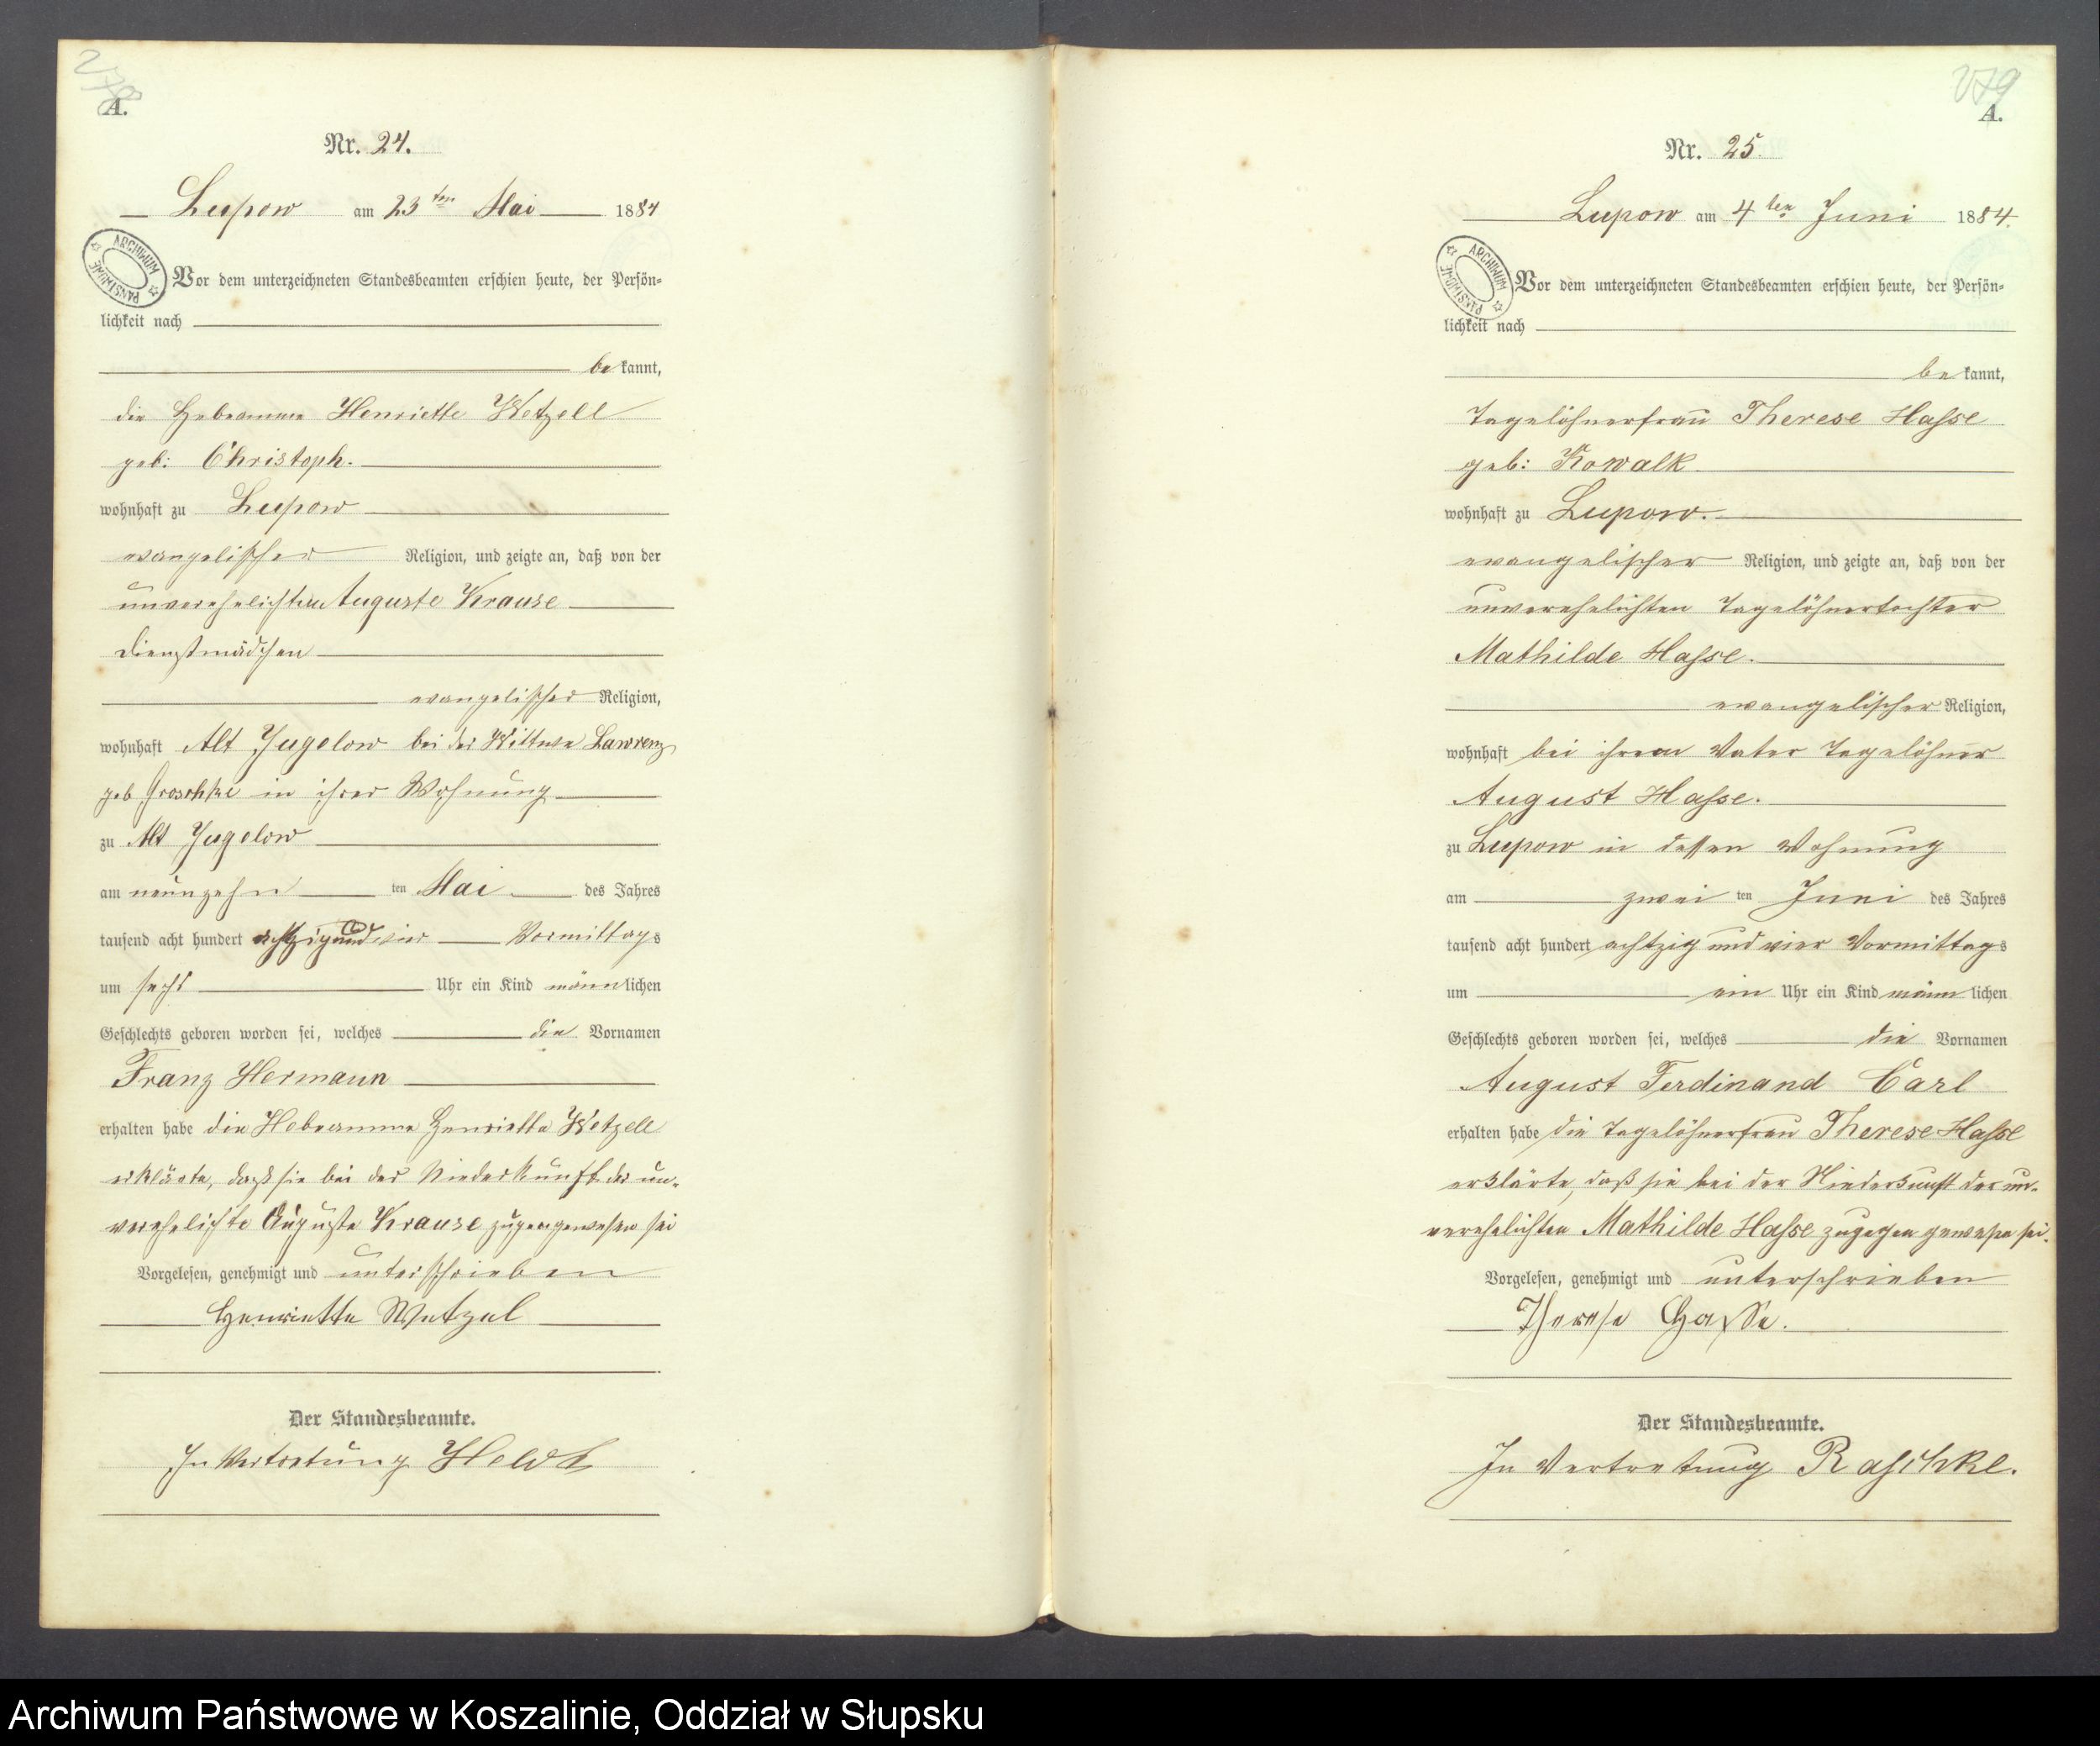 278
A.
Nr. 24.
Lupow am 23ten Mai 1884
ARCHIWUM PAŃSTWOWE
Vor dem unterzeichneten Standesbeamten erschien heute, der Persön=
lichkeit nach
bekannt,
die Hebeamme Henriette Wetzell
geb: Christoph.
wohnhaft zu Lupow
evangelischer Religion, und zeigte an, daß von der
unverehelichten Auguste Krause
Dienstmädchen
evangelischer Religion,
wohnhaft Alt Jugelow bei der Wittwe Lawrenz
geb Groschke in ihrer Wohnung
zu Alt Jugelow
am neunzehn ten Mai des Jahres
tausend acht hundert achtzig und vier Vormittags
um sechs Uhr ein Kind männlichen
Geschlechts geboren worden sei, welches die Vornamen
Franz Hermann
erhalten habe die Hebeamme Henriette Wetzell
erklärte, daß sie bei der Niederkunft der un-
verehelichte Auguste Krause zugegen gewesen sei
Vorgelesen, genehmigt und unterschrieben
Henriette Wetzel
Der Standesbeamte.
In Vertretung Heldt
279
A.
Nr. 25.
Lupow am 4ten Juni 1884.
ARCHIWUM PAŃSTWOWE
Vor dem unterzeichneten Standesbeamten erschien heute, der Persön=
lichkeit nach
bekannt,
Tagelöhnerfrau Therese Hasse
geb: Kowalk
wohnhaft zu Lupow.
evangelischer Religion, und zeigte an, daß von der
unverehelichten Tagelöhnertochter
Mathilde Hasse.
evangelischer Religion,
wohnhaft bei ihrem Vater Tagelöhner
August Hasse.
zu Lupow in dessen Wohnung
am zwei ten Juni des Jahres
tausend acht hundert achtzig und vier Vormittags
um ein Uhr ein Kind männlichen
Geschlechts geboren worden sei, welches die Vornamen
August Ferdinand Carl
erhalten habe die Tagelöhnerfrau Therese Hasse
erklärte, daß sie bei der Niederkunft der un-
verehelichten Mathilde Hasse zugegen gewesen sei.
Vorgelesen, genehmigt und unterschrieben
Therese Hasse.
Der Standesbeamte.
In Vertretung Raschke.
Archiwum Państwowe w Koszalinie, Oddział w Słupsku